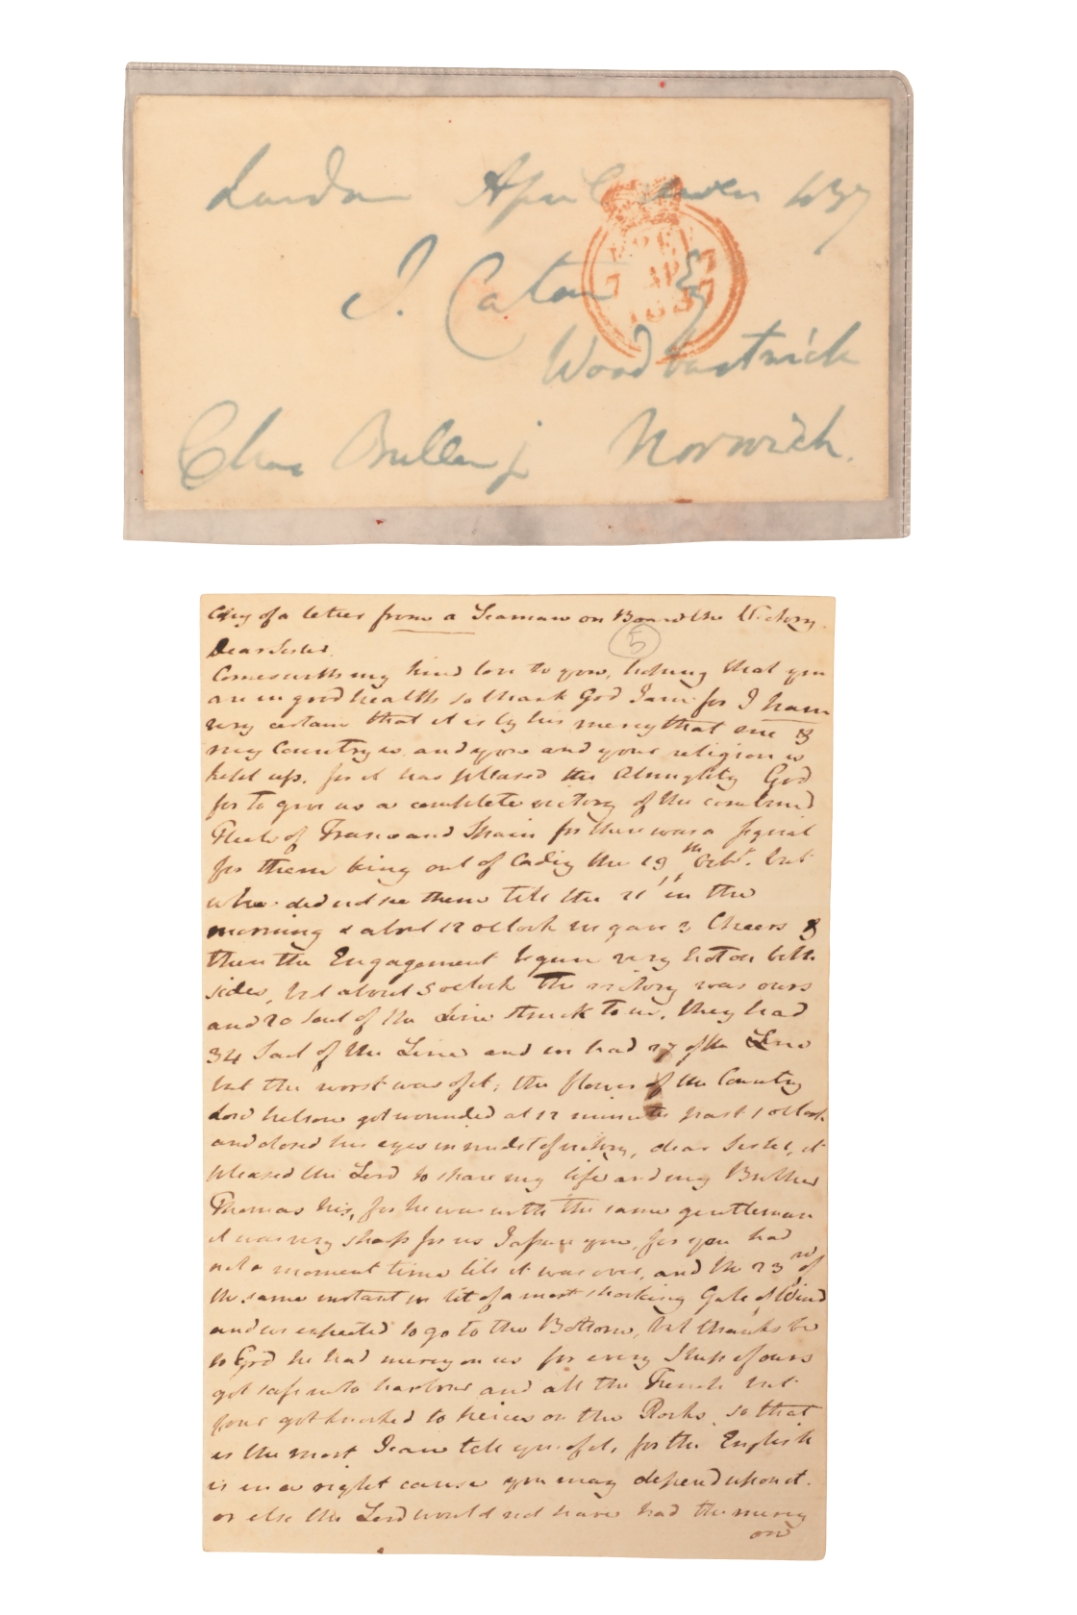 London April seven 1837
J. Caton Esq
Woodbastwick
Chas Buller Jr Norwich.
FREE
7 AP 7
1837
Copy of a letter from a Seaman on Board the Victory.
5
Dear Sister.
Comes with my kind love to you, hoping that you
are in good health so thank God I am for I have
very certain that it is by his mercy that me &
my Country is and you and your religion is
held up. for it has pleased the Almighty God
for to give us a complete victory of the combined
Fleets of France and Spain for there was a signal
for them being out of Cadiz the 19th Octr. but
we did not see them till the 21 in the
morning & abot 12 oclock we gave 3 Cheers &
then the Engagement begun very hot on both
sides, but about 5 oclock the victory was ours
and 20 Sail of the Line struck to us. they had
34 Sail of the Line and we had 27 of the Line
but the worst was of it, the flower of the Country
Lord Nelson got wounded at 12 minutes past 1 oclock
and closed his eyes in midst of victory, dear Sister, it
pleased the Lord to share my life and my Brother
Thomas his, for he was with the same gentleman
it was very sharp for us I asure you, for you had
not a moment time till it was over, and the 23rd of
the same instant we bit of a most shocking Gale of Wind
and we expected to go to the Bottom, but thanks be
to God he had mercy on us for every Ship of ours
got safe into harbour and all the French but
four got knocked to peices on the Rocks. so that
is the most I can tell you of it, for the English
is in a right cause you may depend upon it.
or else the Lord would not have had the mercy
on